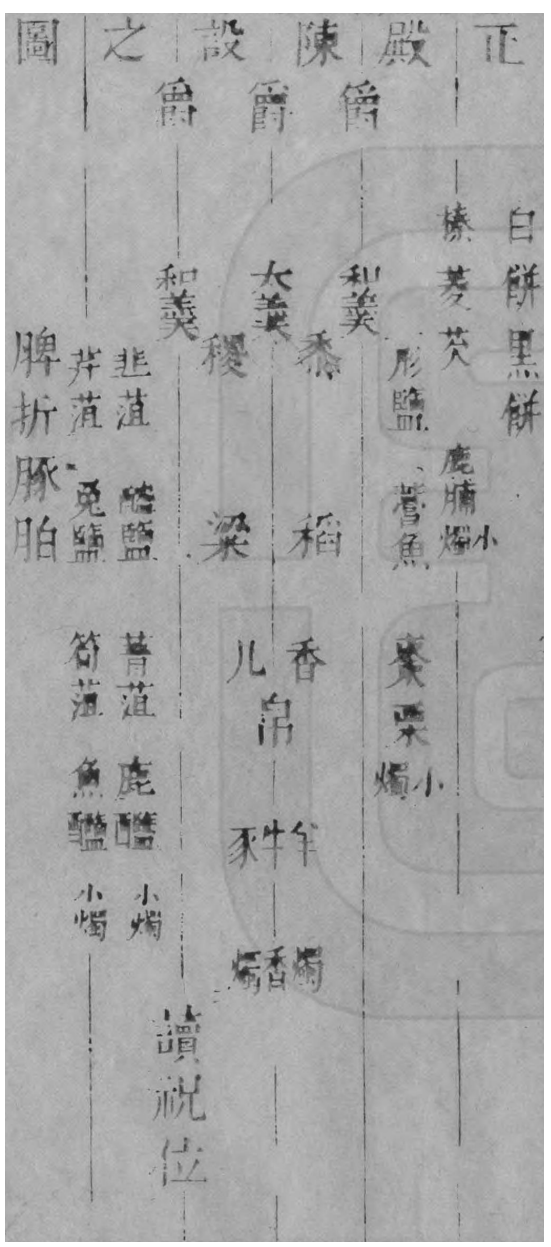 正殿陳設之圖
爵爵爵
白餅黑餅
榛菱芡
鹿脯
小燭
形鹽
藁魚
棗栗
小燭
和羹
大羹
和羹
黍稷
稻粱
香几
帛
羊牛豕
燭香燭
韭菹
醓鹽
菁菹
鹿醢
小燭
芹菹
兔鹽
筍菹
魚醢
小燭
脾折豚胉
讀祝位